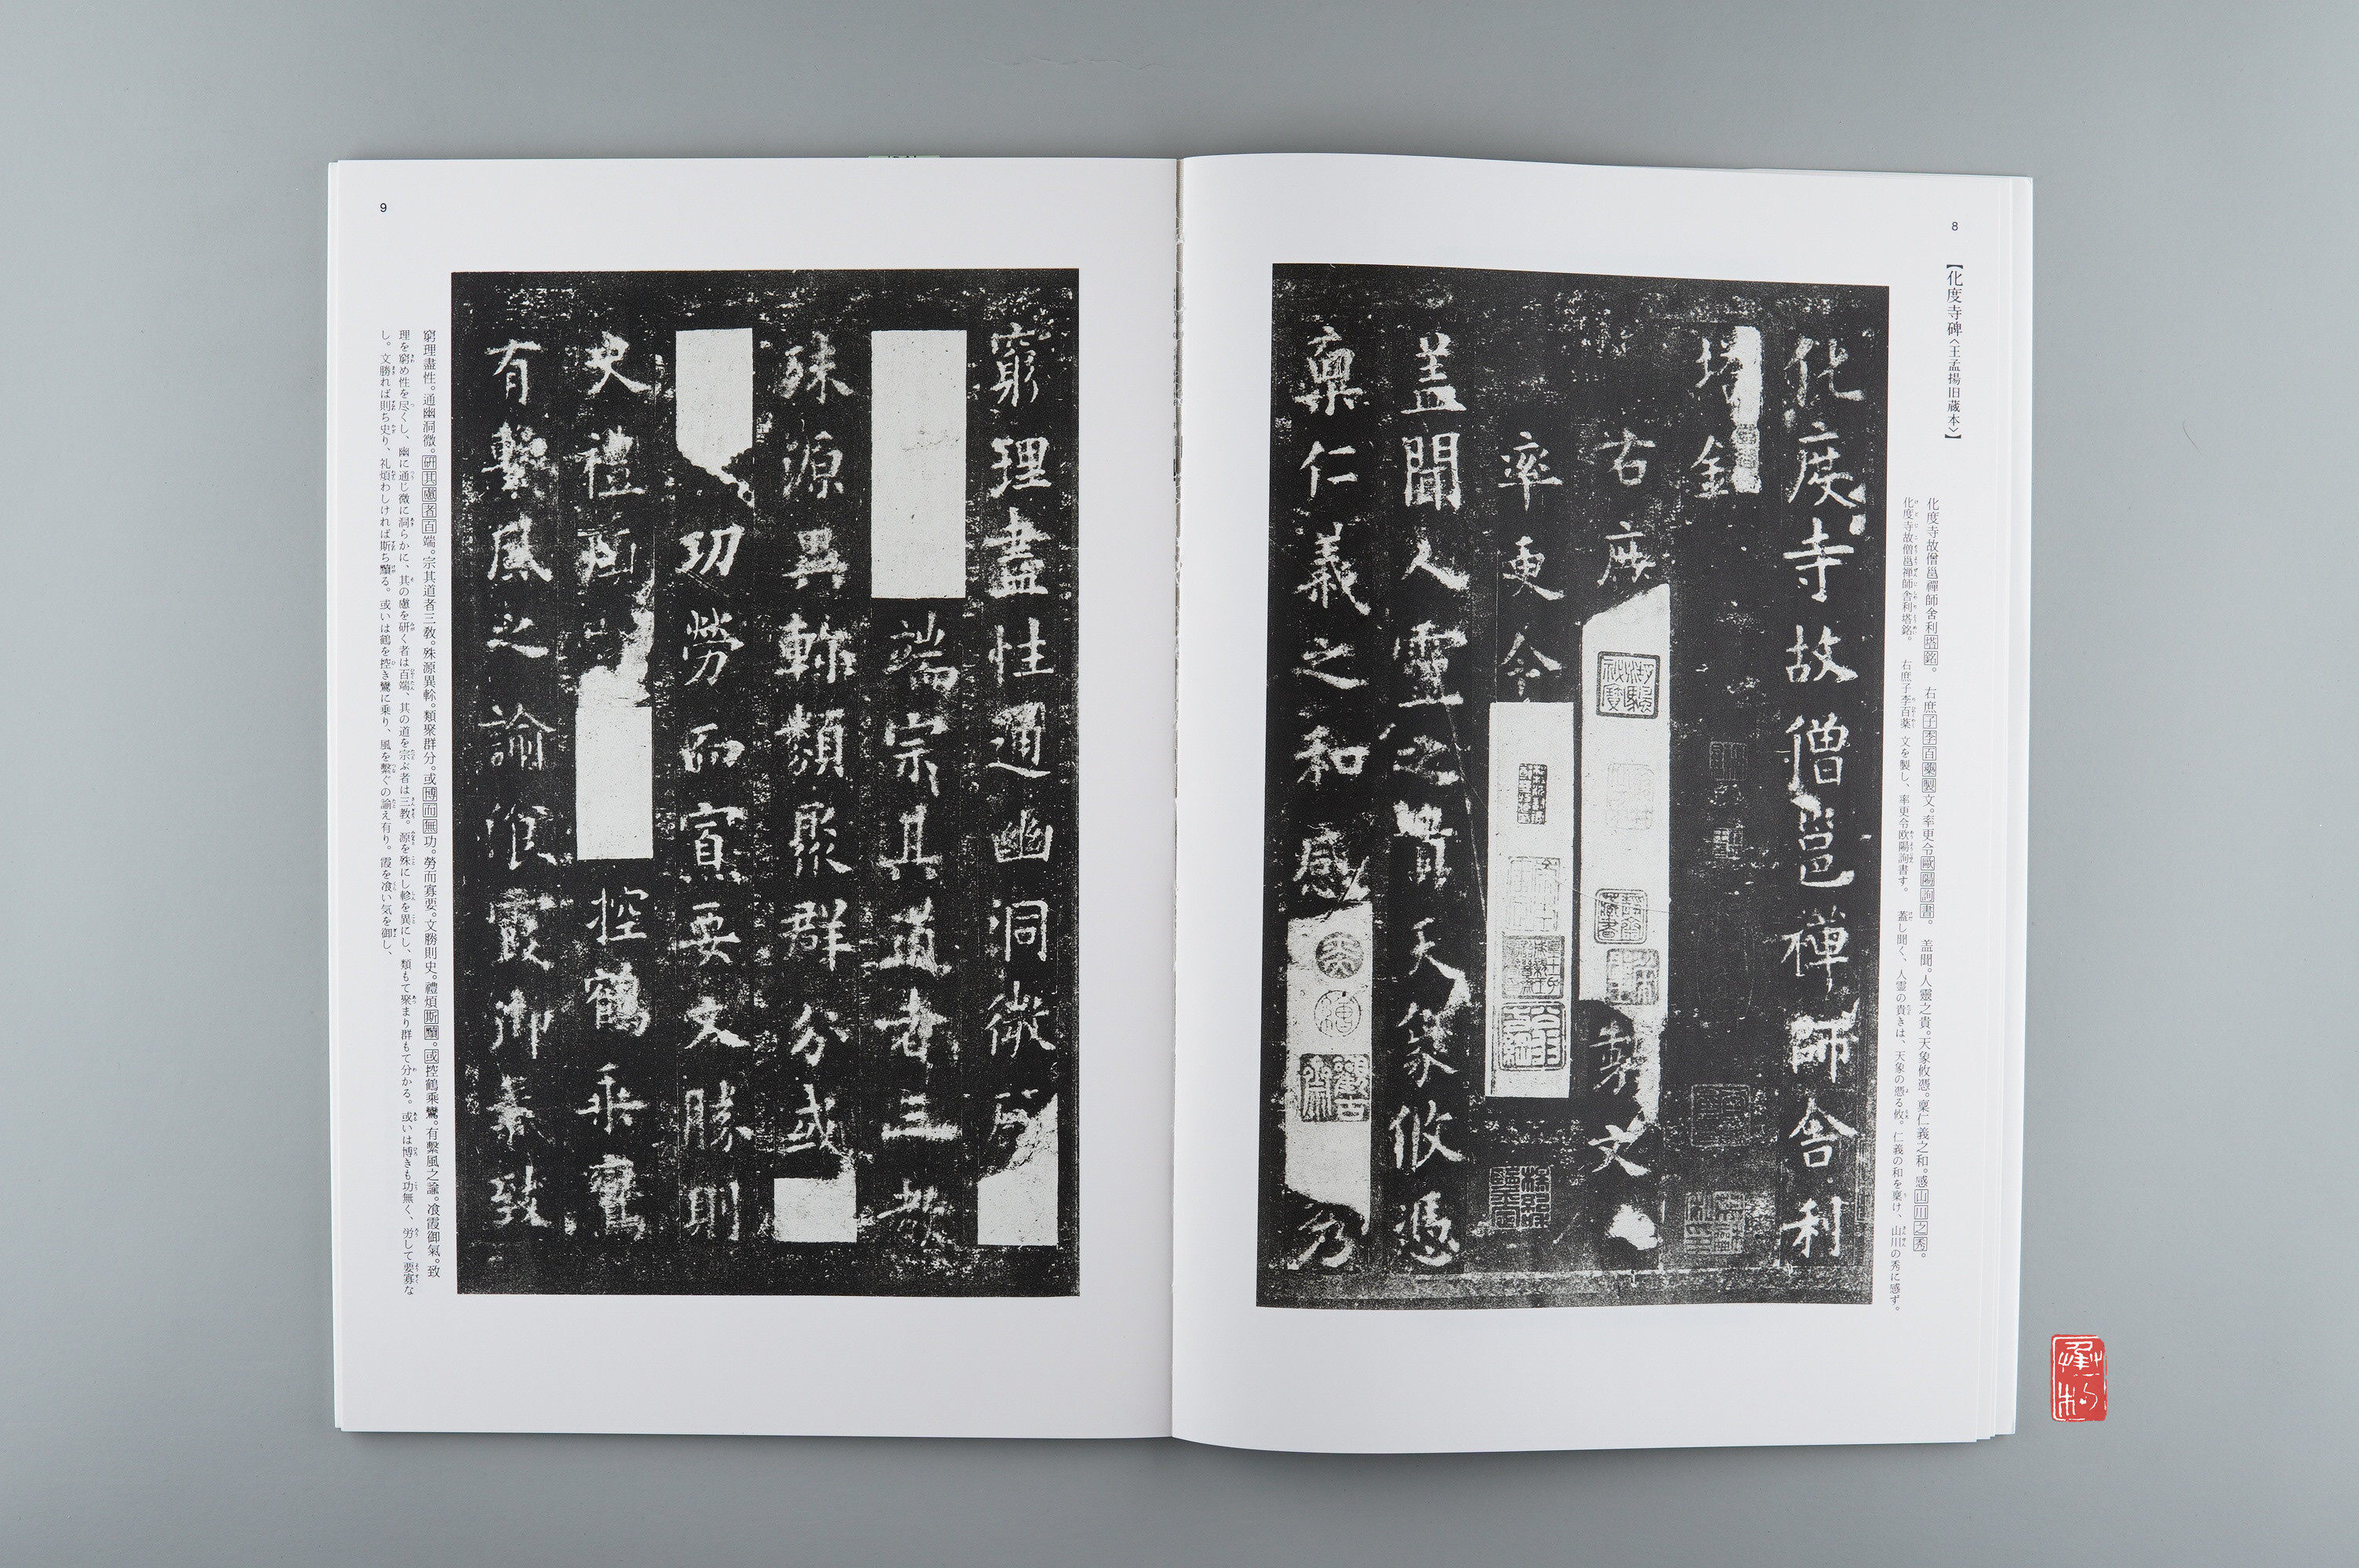 8
【化度寺碑〈王孟揚旧蔵本〉】
化度寺故僧邕禪師舎利塔銘。 右庶子李百藥製文。率更令歐陽詢書。 盖聞。人靈之貴。天象攸憑。稟仁義之和。感山川之秀。
化度寺故僧邕禅師舎利塔銘。 右庶子李百薬 文を製し、率更令欧陽詢書す。 蓋し聞く、人霊の貴きは、天象の憑る攸。仁義の和を稟け、山川の秀に感ず。
化度寺故僧邕禪師舎利
塔銘
右庶
製文
率更令
盖聞人靈之貴天象攸憑
稟仁義之和感
乃
9
窮理盡性通幽洞微研
端宗其道者三教
殊源異軫類聚群分或
功勞而寡要文勝則
史禮煩
控鶴乘鸞
有繫風之諭飡霞御氣致
窮理盡性。通幽洞微。研其慮者百端。宗其道者三教。殊源異軫。類聚群分。或博而無功。勞而寡要。文勝則史。禮煩斯黷。或控鶴乘鸞。有繫風之諭。飡霞御氣。致
理を窮め性を尽くし、幽に通じ微に洞らかに、其の慮を研く者は百端、其の道を宗ぶ者は三教。源を殊にし軫を異にし、類もて聚まり群もて分かる。或いは博きも功無く、労して要寡な
し。文勝れば則ち史り、礼煩わしければ斯ち黷る。或いは鶴を控き鸞に乗り、風を繫ぐの諭え有り。霞を飡い気を御し、